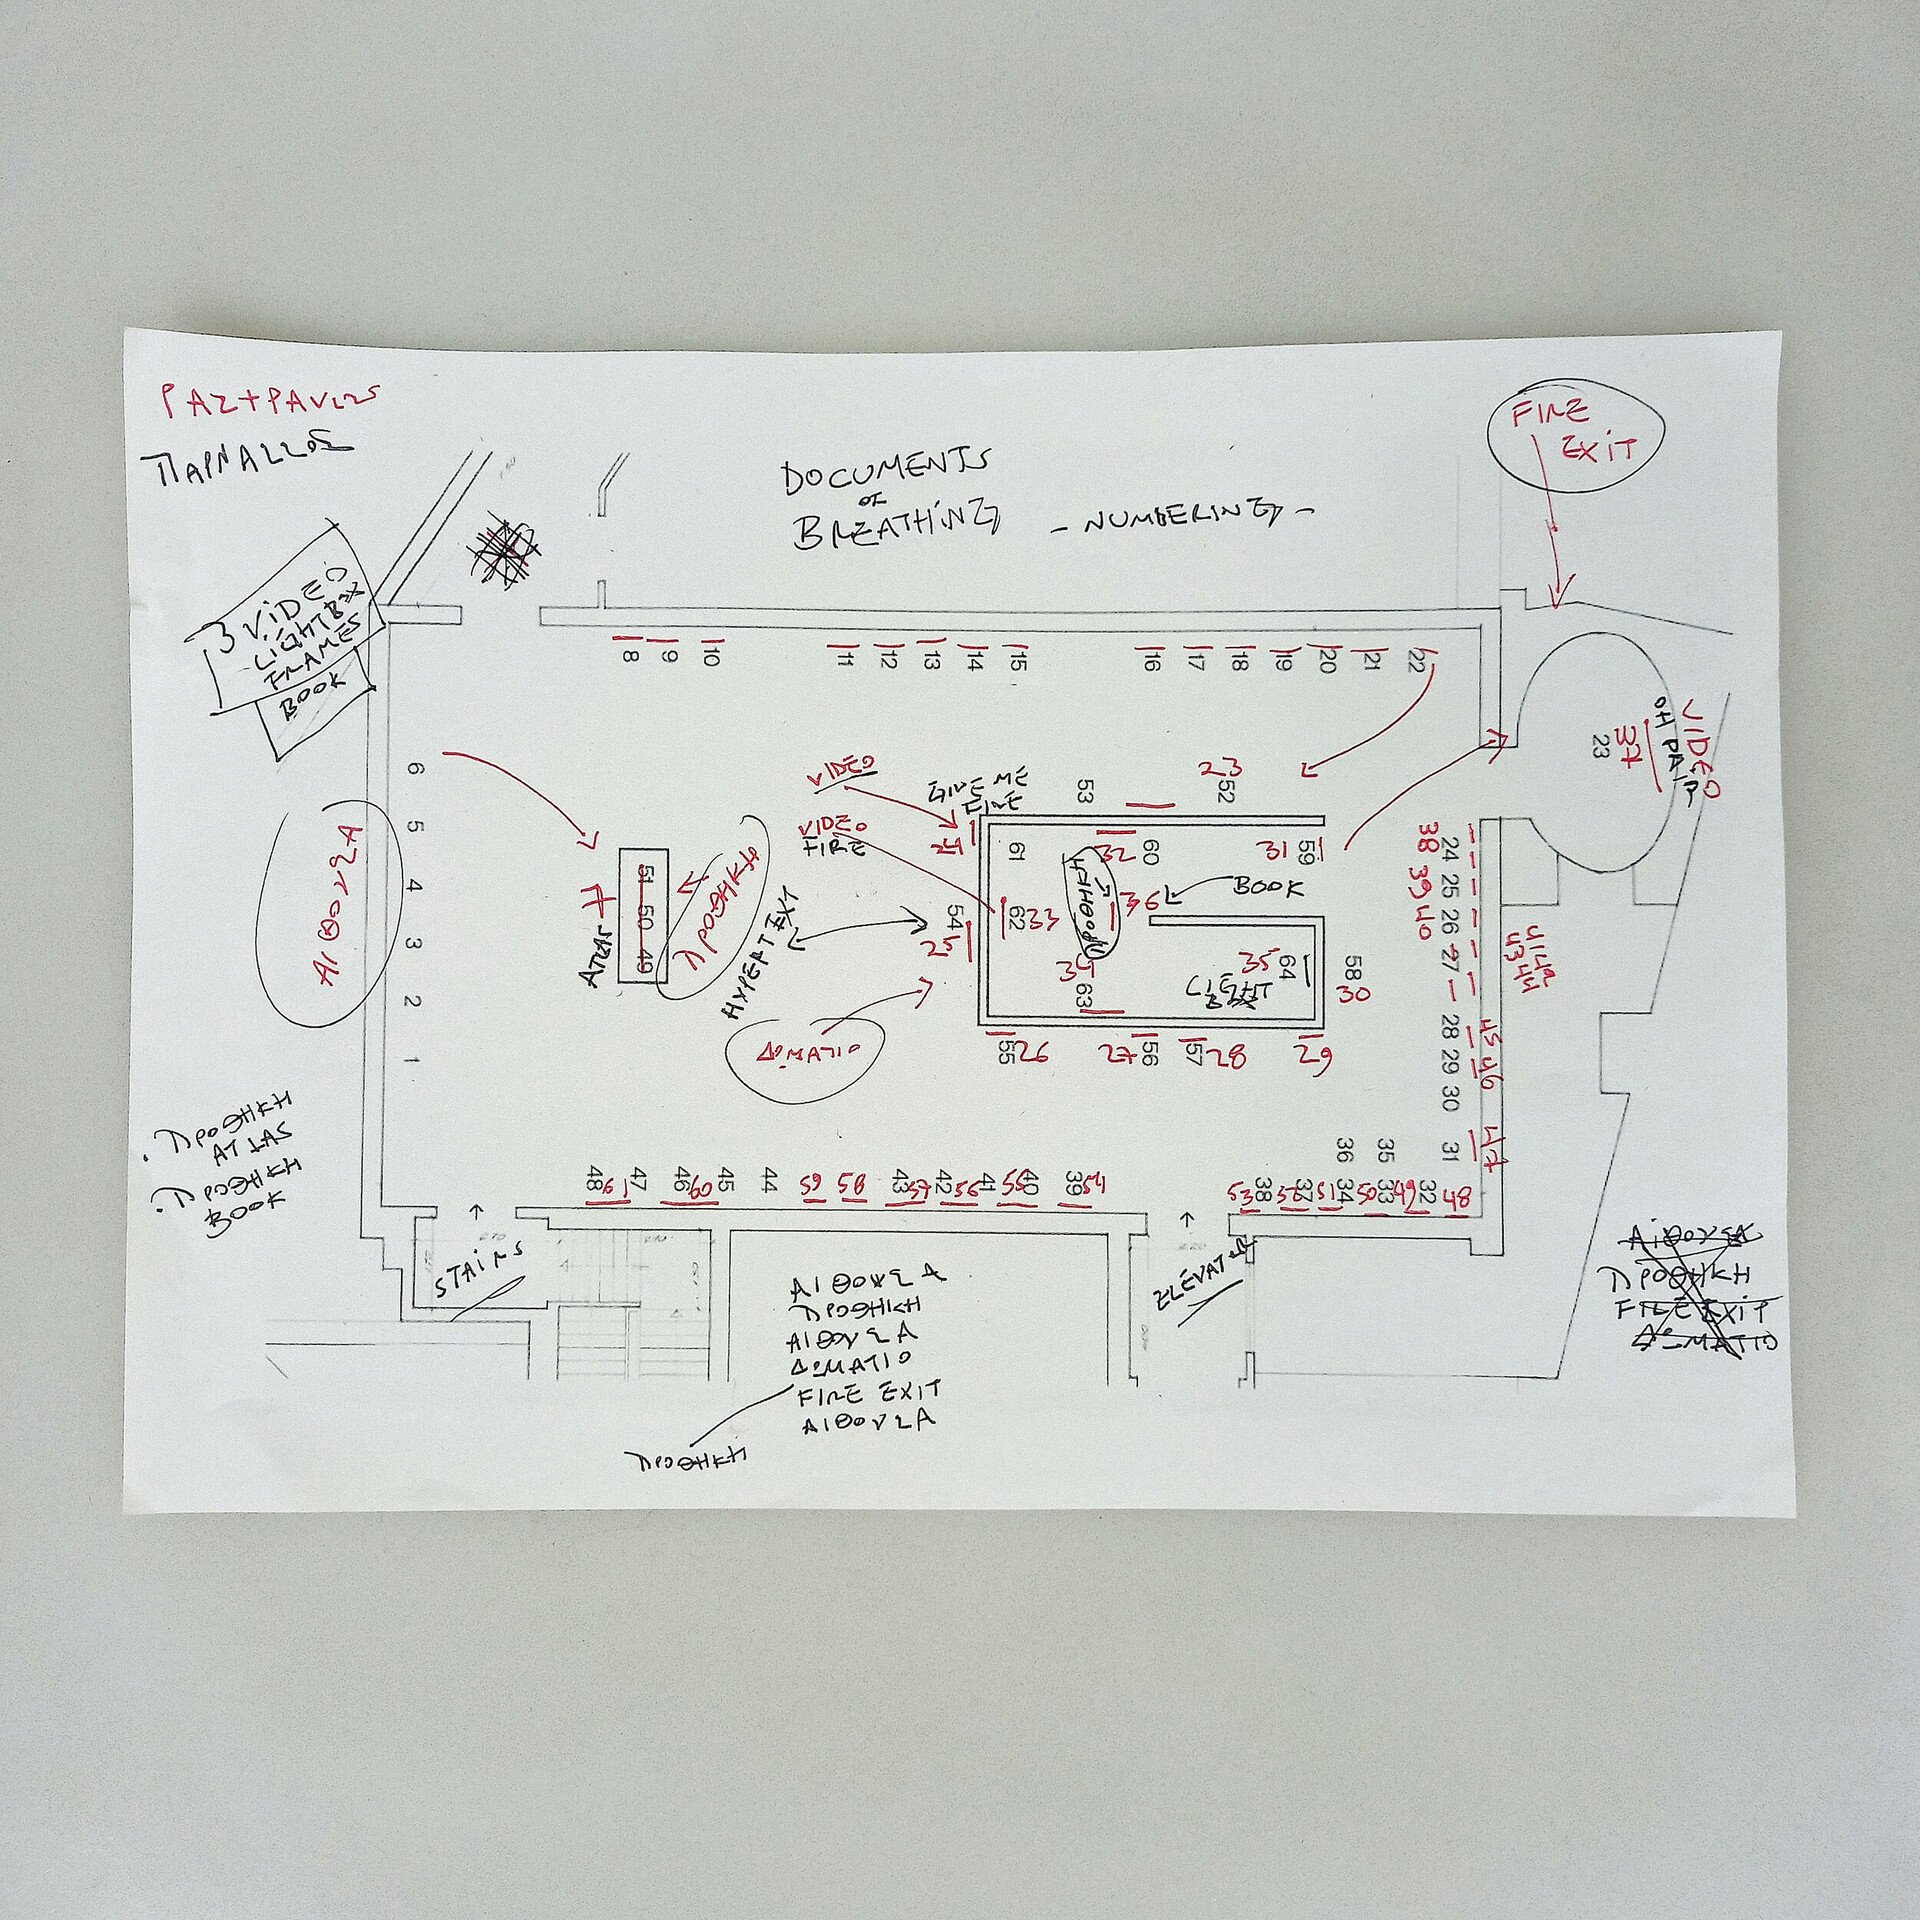 ΠΑΡΝΑΣΣΟΣ
DOCUMENTS
OF
BREATHING - NUMBERING -
FIRE
EXIT
3 VIDEO
LIGHTBOX
FRAMES
BOOK
8 9 10 11 12 13 14 15 16 17 18 19 20 21 22
VIDEO
23
37
6
5
4
3
2
1
ΑΙΘΟΥΣΑ
VIDEO
GIVE ME
FIRE
VIDEO
FIRE
53
23
52
61
32
60
31
59
51
50
49
7
ATLAS
ΠΡΟΘΗΚΗ
HYPERTEXT
54
25
62
33
ΠΡΟΘΗΚΗ
36
BOOK
34
63
35
64
58
30
ΔΩΜΑΤΙΟ
55 26 27 56 57 28 29
38
39
40
24
25
26
27
28
29
30
31
41
42
43
44
45
46
47
36 35
48 61 47 46 60 45 44 59 58 43 57 42 56 41 55 40 39 54
53 38 52 37 51 34 50 33 49 32 48
. ΠΡΟΘΗΚΗ
ATLAS
. ΠΡΟΘΗΚΗ
BOOK
STAIRS
ELEVATOR
ΑΙΘΟΥΣΑ
ΠΡΟΘΗΚΗ
ΑΙΘΟΥΣΑ
ΔΩΜΑΤΙΟ
FIRE EXIT
ΑΙΘΟΥΣΑ
ΠΡΟΘΗΚΗ
ΑΙΘΟΥΣΑ
ΠΡΟΘΗΚΗ
FIRE EXIT
ΔΩΜΑΤΙΟ